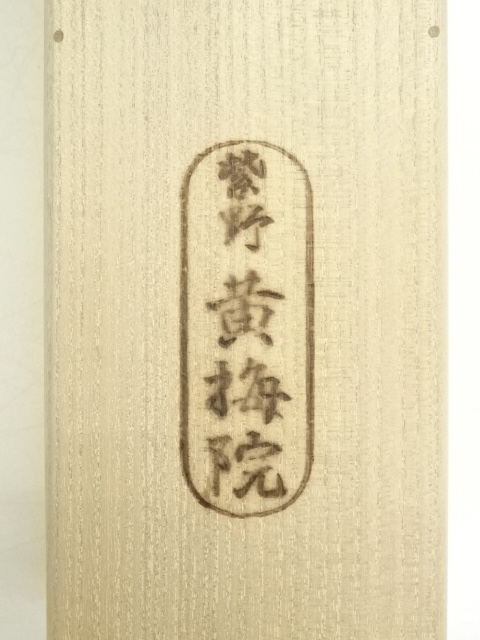 紫野
黄梅院